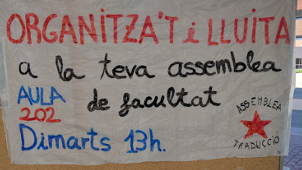 ORGANITZA'T i LLUITA
a la teva assemblea
AULA 202
de facultat
Dimarts 13h.
ASSEMBLEA
TRADUCCIÓ